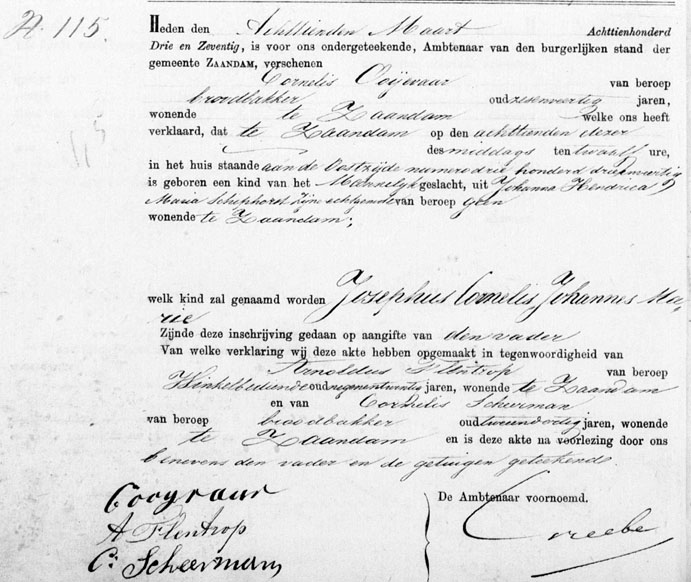 N. 115.
Heden den Achttienden Maart Achttienhonderd
Drie en Zeventig, is voor ons ondergeteekende, Ambtenaar van den burgerlijken stand der
gemeente ZAANDAM, verschenen
Cornelis Ooijevaar van beroep
broodbakker oud zesenveertig jaren,
wonende te Zaandam welke ons heeft
verklaard, dat te Zaandam op den achttienden dezer
des middags ten twaalf ure,
in het huis staande aan de Oostzijde numero drie honderd drieenveertig
is geboren een kind van het Mannelijk geslacht, uit Johanna Hendrica
Maria Schephorst zijne echtgenoote van beroep geen
wonende te Zaandam;
welk kind zal genaamd worden Josephus Cornelis Johannes Ma-
rie
Zijnde deze inschrijving gedaan op aangifte van den vader
Van welke verklaring wij deze akte hebben opgemaakt in tegenwoordigheid van
Arnoldus Flentrop van beroep
Winkelbediende oud negenentwintig jaren, wonende te Zaandam
en van Cornelis Scheerman
van beroep broodbakker oud jaren, wonende
te Zaandam en is deze akte na voorlezing door ons
benevens den vader en de getuigen geteekend
A Flentrop
C: Scheerman
De Ambtenaar voornoemd.